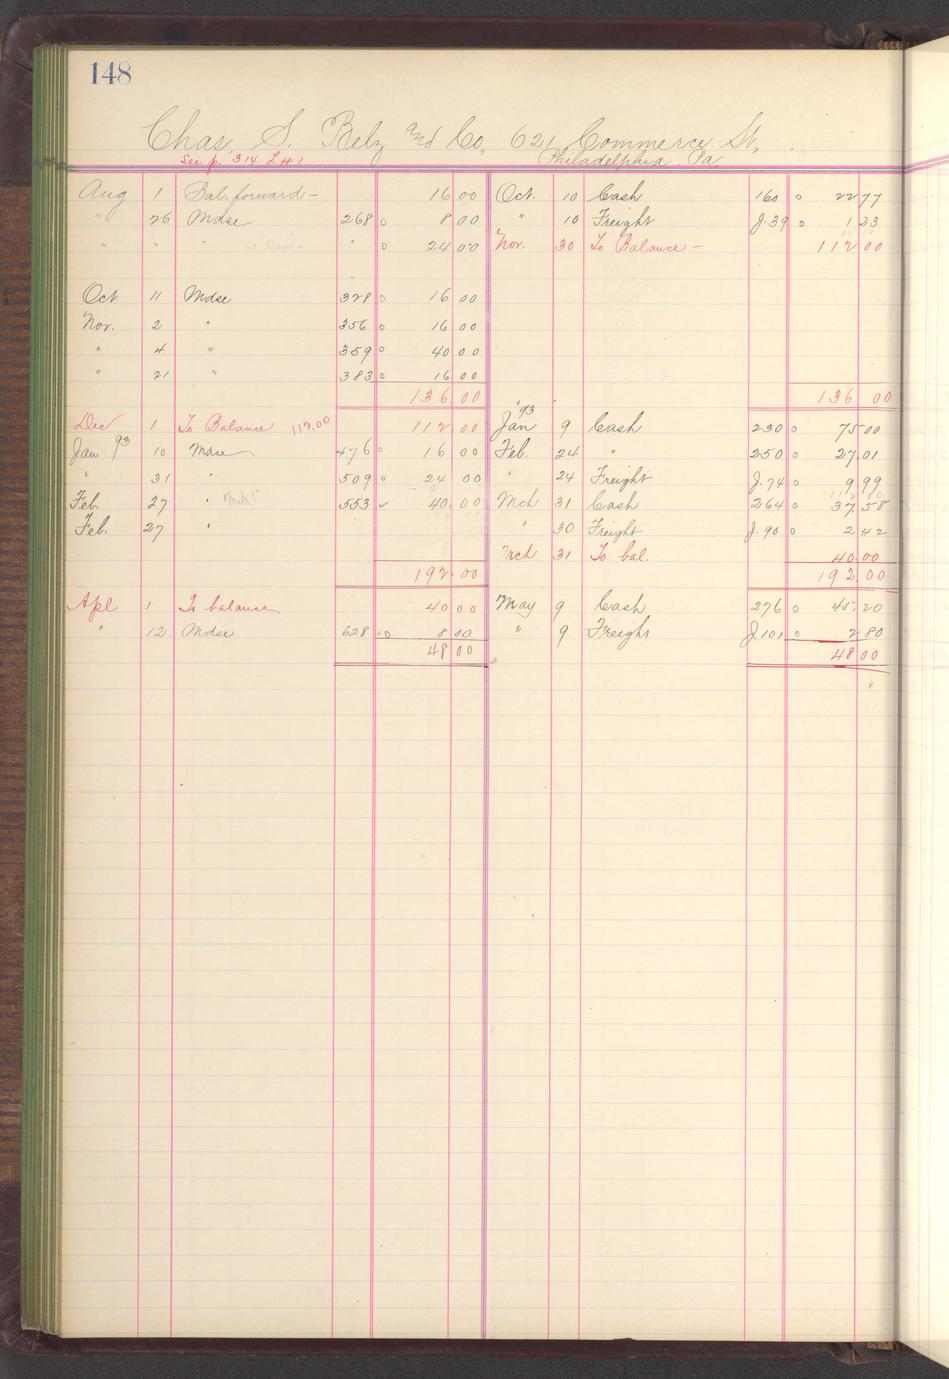 148
Chas. S. Belz and Co. 621 Commerce St.,
See p. 314. L#1 Philadelphia. Pa
Aug 1 Bal. forward – 16 00 Oct. 10 Cash 160 0 22 77
" 26 Mdse 268 0 8 00 " 10 Freight J.39 0 1 23
" " " 60 Days – " 0 24 00 Nov. 30 To Balance – 112 00
Oct 11 Mdse 328 0 16 00
Nov. 2 " 356 0 16 00
" 4 " 359 0 40 00
" 21 " 383 0 16 00
136 00 136 00
Dec 1 To Balance 112.00 112 00 Jan "93 9 Cash 230 0 75 00
Jan 93 10 Mdse 476 0 16 00 Feb. 24 " 250 0 27.01
" 31 " 509 0 24 00 " 24 Freight J.74 0 9 99
Feb. 27 " Mch 1" 553 ✓ 40.00 Mch 31 Cash 264 0 37 58
Feb. 27 " " 30 Freight J.90 0 2 42
Mch 31 To bal. 40.00
192.00 192.00
Apl 1 To balance 40 00 May 9 Cash 276 0 45.20
" 12 Mdse 628 0 8 00 " 9 Freight J.101 0 2 80
48 00 48 00